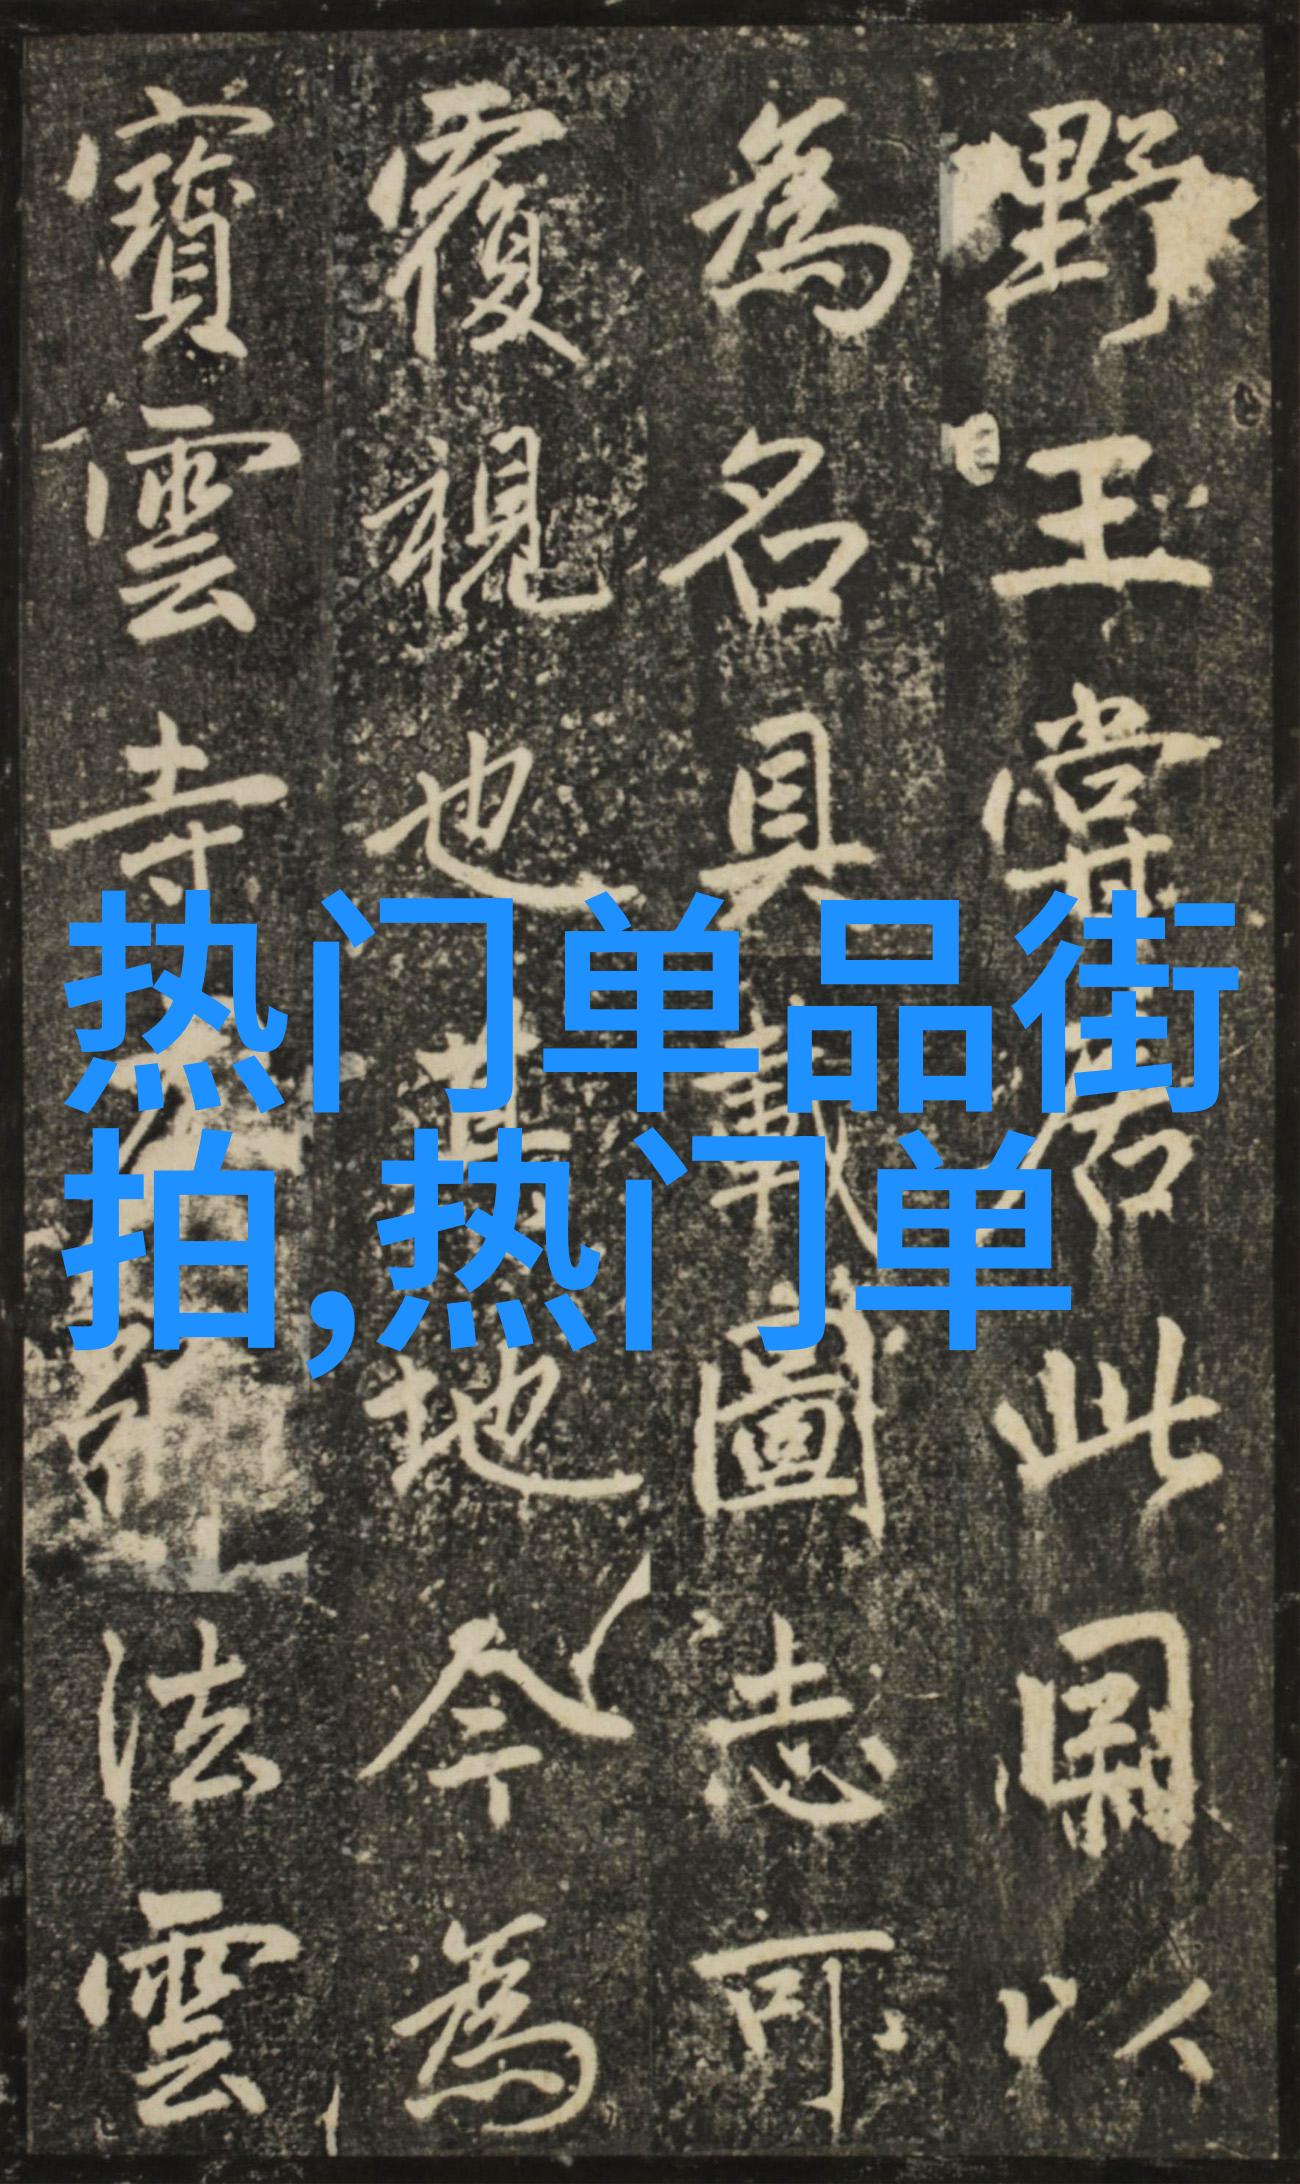 野王嘗居此因以
為名具載圖志可
覆視也其地今為
寶雲寺法雲
热门单品街
拍,热门单